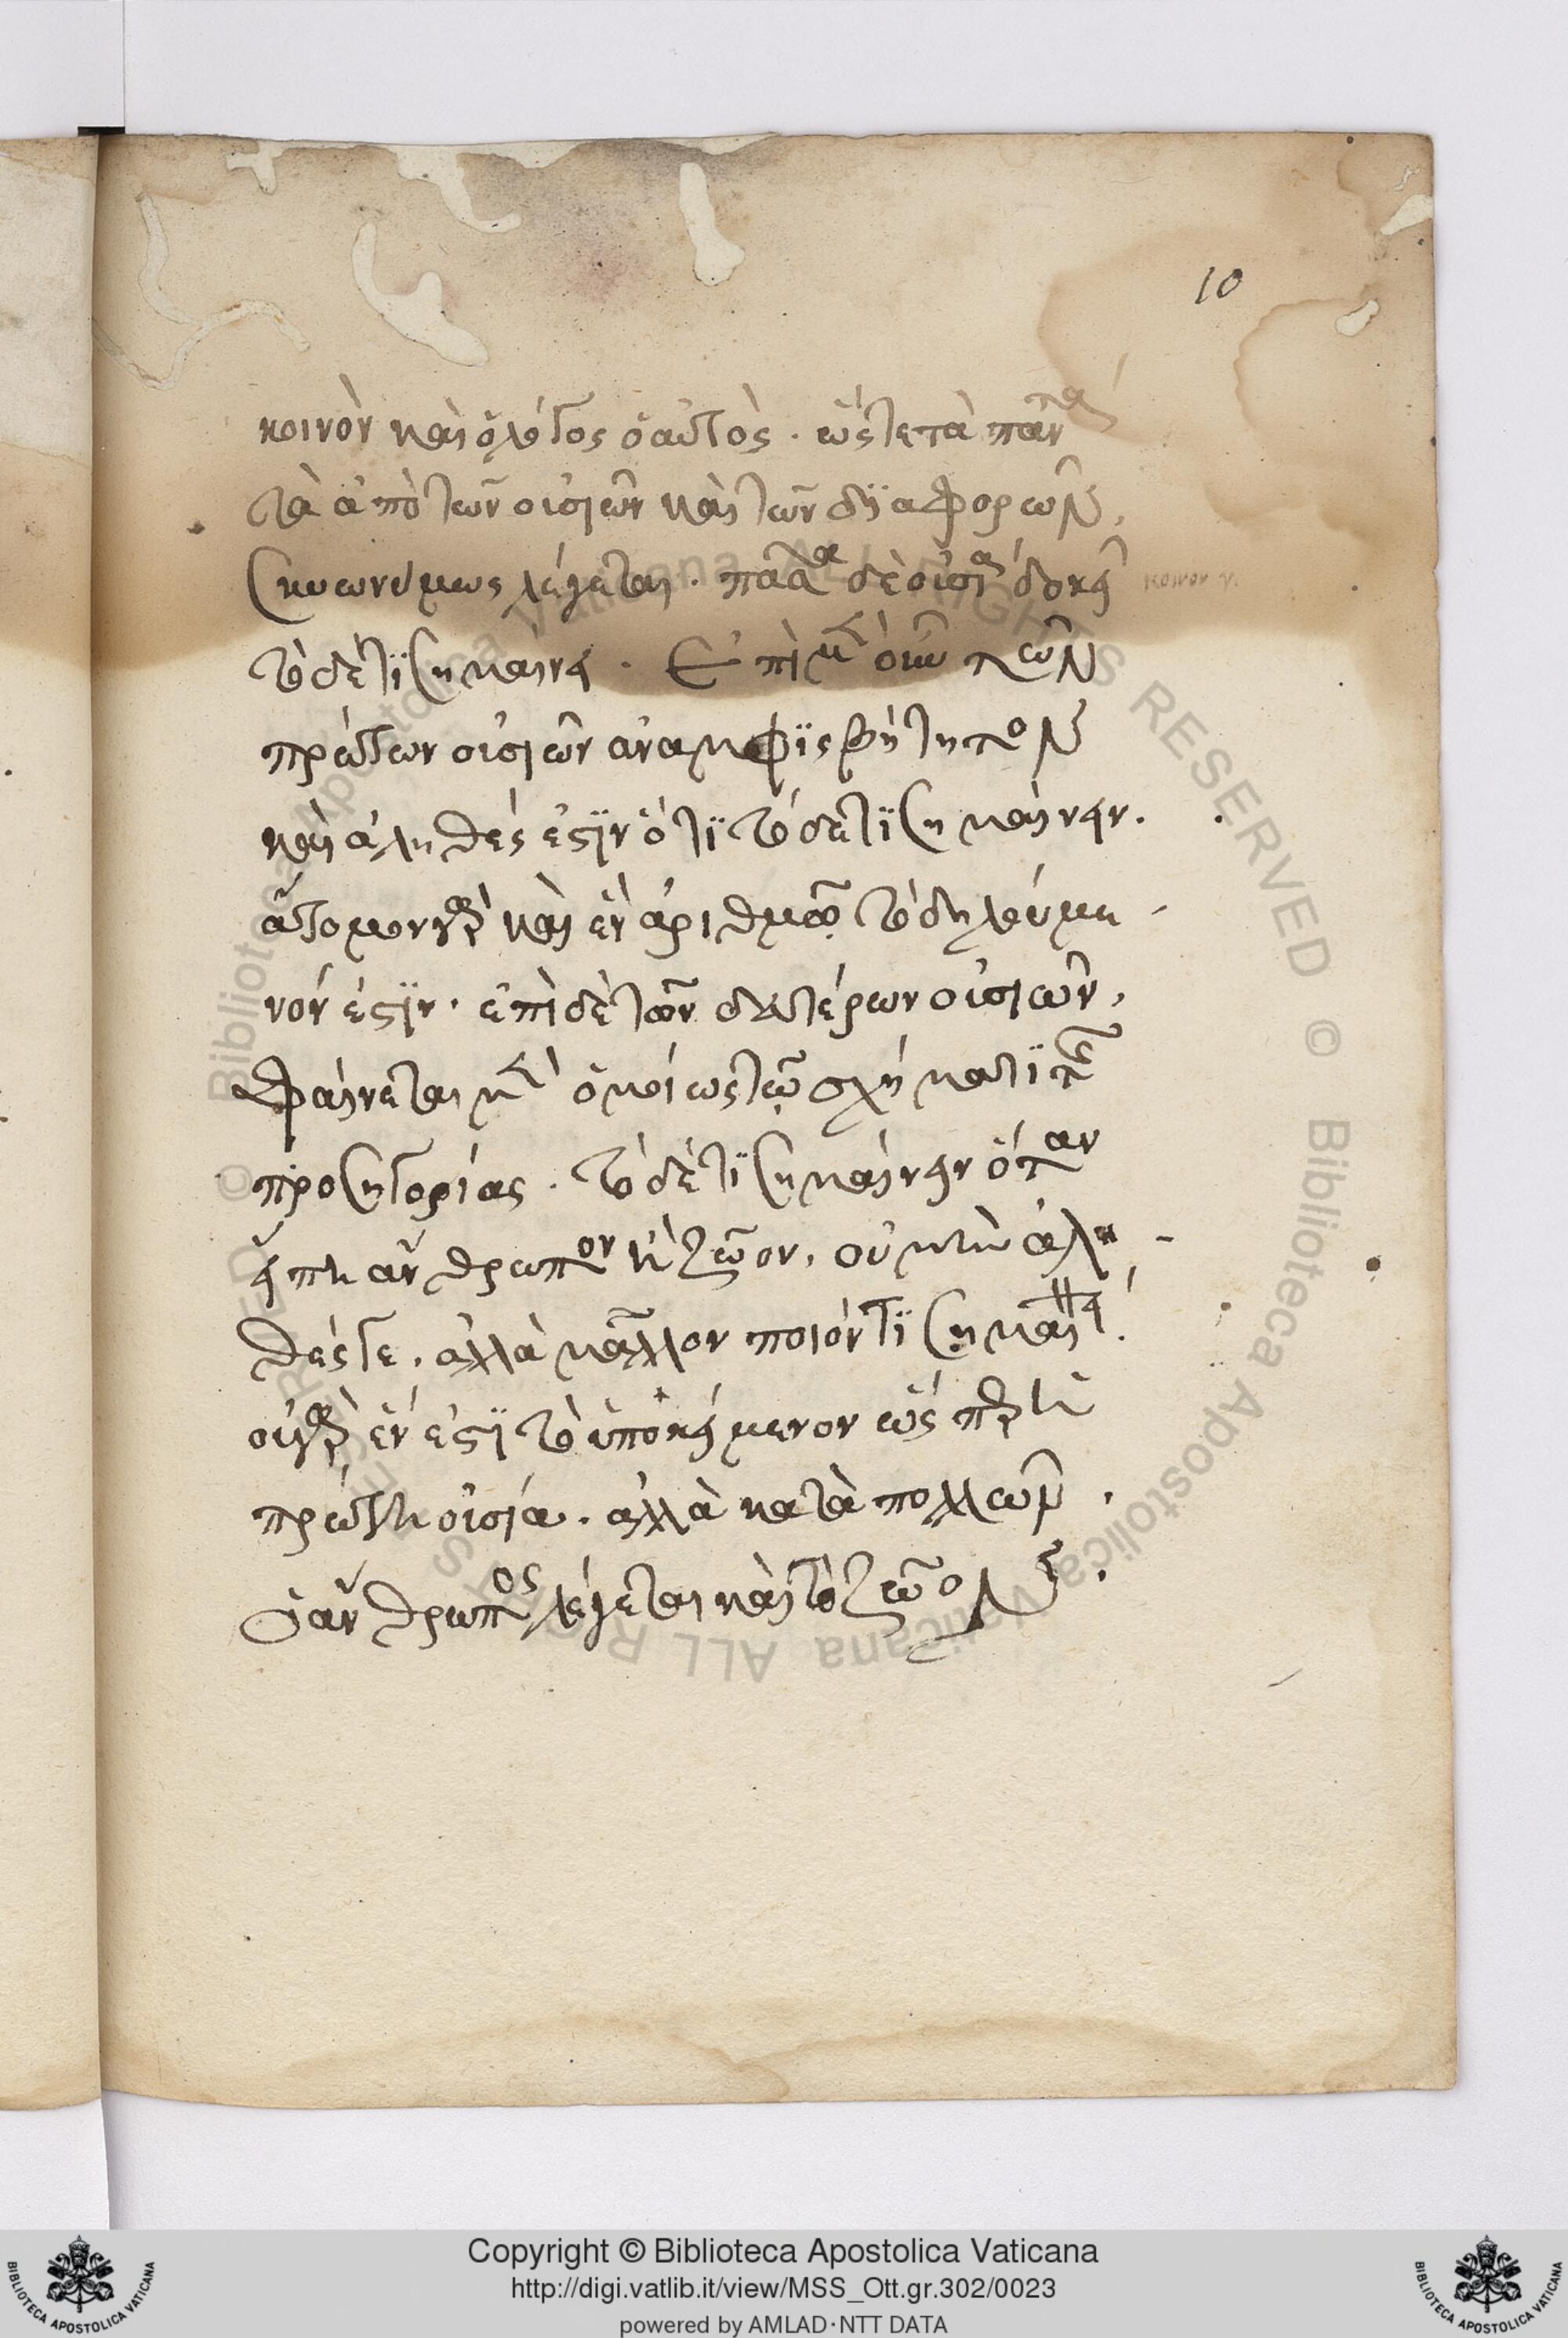 10
κοινὸν καὶ ὁ λόγος ὁ αὐτὸς. ὥστε τὰ πάντα
τὰ ἀπὸ τῶν οὐσιῶν καὶ τῶν διαφορῶν,
συνωνύμως λέγεται. πᾶσα δὲ οὐσία δοκεῖ
τόδε τϊ σημαίνει. Ἐπὶ μὲν οὖν τῶν
πρώτων οὐσιῶν αναμφϊσβήτητον
καὶ ἀληθές ἐστϊν ὅτϊ τόδε τϊ σημαίνειν.
ἄτομον γὰρ καὶ ἓν ἀριθμῶ τὸ δηλούμε-
νόν ἐστϊν. ἐπὶ δὲ τῶν δευτέρων οὐσιῶν,
φαίνεται μὲν ὁμοίως τῶ σχήματϊ τῆς
προσηγορίας. τόδε τϊ σημαίνειν ὅταν
εἴπη ἄνθρωπον ἢ ζῶον, οὐ μὴν ἀλη-
θές γε. ἀλλὰ μᾶλλον ποιόν τϊ σημαίνει.
οὐ γὰρ ἕν ἐστϊ τὸ ὑποκείμενον ὥσπερ ἡ
πρώτη οὐσία. ἀλλὰ κατὰ πολλῶν,
ὁ ἄνθρωπος λέγεται καὶ τὸ ζῶον.
κοινον
Copyright © Biblioteca Apostolica Vaticana
http://digi.vatlib.it/view/MSS_Ott.gr.302/0023
powered by AMLAD·NTT DATA
BIBLIOTECA APOSTOLICA VATICANA
BIBLIOTECA APOSTOLICA VATICANA